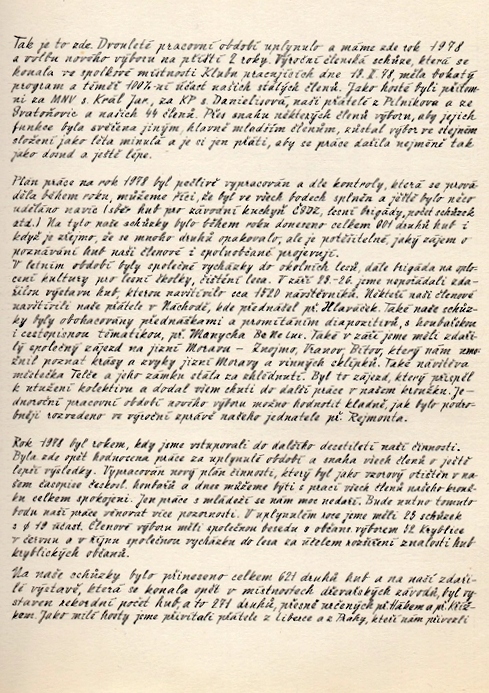 Tak je to zde. Dvouleté pracovní období uplynulo a máme zde rok 1978
a volbu nového výboru na příští 2 roky. Výroční členská schůze, která se
konala ve spolkové místnosti Klubu pracujících dne 18.2.78, měla bohatý
program a téměř 100%-ní účast našich stálých členů. Jako hosté byli přítom-
ni za MNV s. Král Jar., za KP s. Danielisová, naši přátelé z Pilníkova a ze
Svatoňovic a našich 44 členů. Přes snahu některých členů výboru, aby jejich
funkce byla svěřena jiným, hlavně mladším členům, zůstal výbor ve stejném
složení jako léta minulá a je si jen přáti, aby se práce dařila nejméně tak
jako dosud a ještě lépe.
Plán práce na rok 1978 byl pečlivě vypracován a dle kontroly, která se prová-
děla během roku, můžeme říci, že byl ve všech bodech splněn a ještě bylo něco
uděláno navíc (sběr hub pro závodní kuchyň ČSDZ, lesní brigády, počet schůzek
atd.) Na tyto naše schůzky bylo během roku doneseno celkem 801 druhů hub i
když je zřejmo, že se mnoho druhů opakovalo, ale je potěšitelné, jaký zájem o
poznávání hub naši členové i spoluobčané projevují.
V letním období byly společné vycházky do okolních lesů, dále brigáda na oplo-
cení kultury pro lesní školky, čištění lesa. V září 23.-26. jsme uspořádali zda-
řilou výstavu hub, kterou navštívilo cca 1520 návštěvníků. Někteří naši členové
navštívili naše přátele v Náchodě, kde přednášel př. Hlaváček. Také naše schůz-
ky byly obohacovány přednáškami a promítáním diapozitivů, s houbařskou
i cestopisnou tématikou, př. Manycha BeNeLux. Také v září jsme měli zdaři-
lý společný zájezd na jižní Moravu – Znojmo, Vranov, Bítov, který nám umo-
žnil poznat krásy a zvyky jižní Moravy a vinných sklípků. Také návštěva
městečka Telče a jeho zámku stála za shlédnutí. Byl to zájezd, který přispěl
k utužení kolektivu a dodal všem chuti do další práce v našem kroužku. Je-
dnoroční pracovní období nového výboru možno hodnotit kladně, jak bylo podro-
bněji rozvedeno ve výroční zprávě našeho jednatele př. Rejmonta.
Rok 1978 byl rokem, kdy jsme vstupovali do dalšího desetiletí naší činnosti.
Byla zde opět hodnocena práce za uplynulé období a snaha všech členů o ještě
lepší výsledky. Vypracován nový plán činnosti, který byl jako vzorový otištěn v na-
šem časopise českosl. houbařů a dnes můžeme býti s prací všech členů našeho krouž-
ku celkem spokojeni. Jen práce s mládeží se nám moc nedaří. Bude nutno tomuto
bodu naší práce věnovat více pozornosti. V uplynulém roce jsme měli 23 schůzek
s ø 19 účast. Členové výboru měli společnou besedu s občans. výborem 12 Kryblice
v červnu a v říjnu společnou vycházku do lesa za účelem rozšíření znalostí hub
kryblických občanů.
Na naše schůzky bylo přineseno celkem 621 druhů hub a na naší zdaři-
lé výstavě, která se konala opět v místnostech dřevařských závodů, byl vy-
staven rekordní počet hub, a to 271 druhů, přesně určených př. Hábem a př. Kříž-
kem. Jako milé hosty jsme přivítali přátele z Liberce a z Prahy, kteří nám přivezli